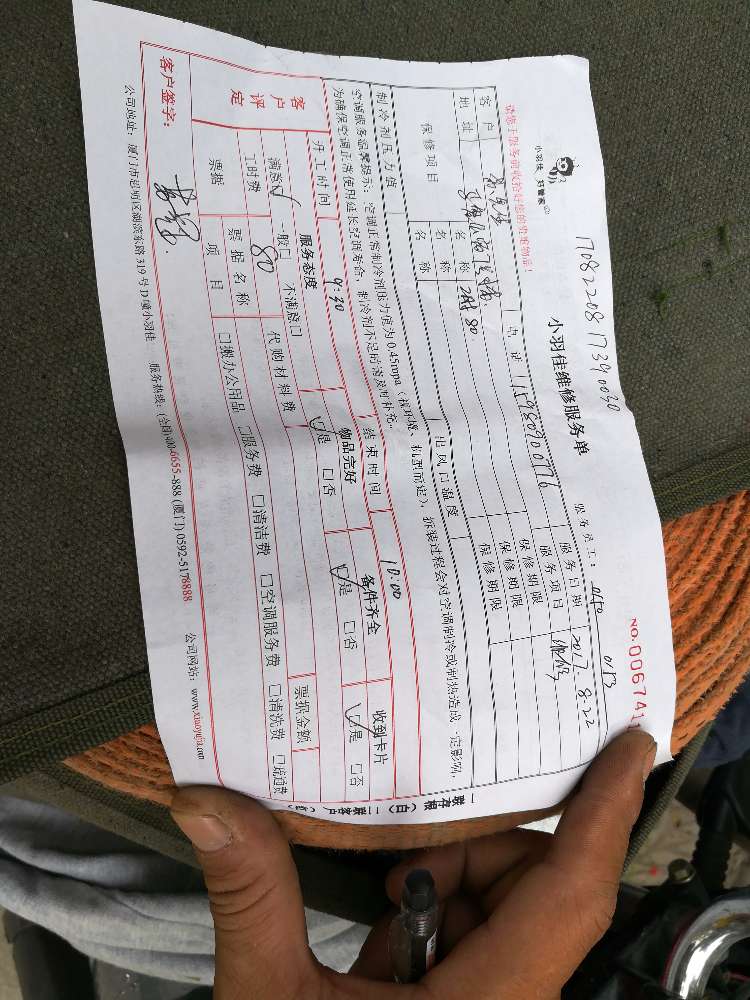 1708220817390030
小羽佳 好管家
小羽佳维修服务单
NO.006741
请您于服务前收拾好您的贵重物品！
服务员工： 0153
客户
电话 15980900776
服务日期 2017.8.22
地址
服务项目 维修
保修项目
名称
保修期限
名称
保修期限
名称
保修期限
制冷剂压力值
出风口温度
空调服务温馨提示：空调正常制冷剂压力值为0.45mpa（按环境、机型而定），拆装过程会对空调制冷或制热造成一定影响，
为确保空调正常使用延长空调寿命，制冷剂不足时需及时补充。
开工时间 9:30 结束时间 10:00
客户评定
服务态度 物品完好 备件齐全 收到卡片
满意☑ 一般□ 不满意□ ☑是 □否 ☑是 □否 ☑是 □否
工时费 80 代购材料费
票据
票据名称 票据金额
项目 □搬办公用品 □服务费 □清洁费 □空调服务费 □清洗费 □疏通费
客户签字：
公司地址：厦门市思明区湖滨东路319号D幢小羽佳 服务热线：(全国)400-6655-888 (厦门)0592-5178888 公司网站：www.xiaoyujia.com